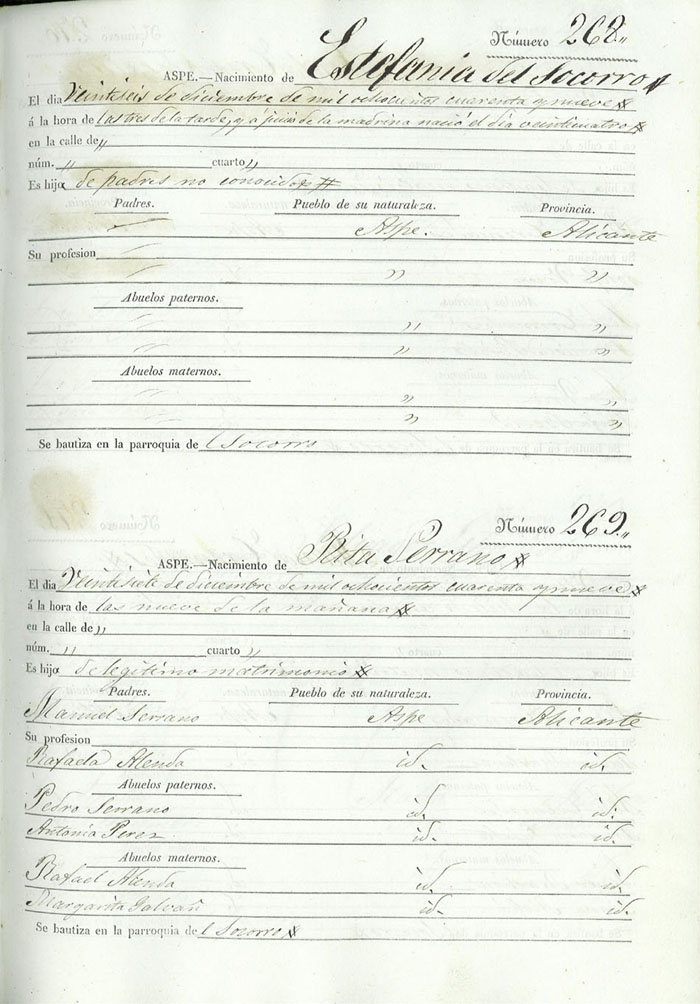 Número 268.,,
ASPE.—Nacimiento de Estefania del Socorro
El dia Veintiseis de diciembre de mil ochocientos cuarenta y nueve
á la hora de las tres de la tarde, y a juicio de la madrina nació el dia veinticuatro
en la calle de ,,
núm. ,, cuarto ,,
Es hija de padres no conocidos
Padres. Pueblo de su naturaleza. Provincia.
Aspe. Alicante
Su profesion
,, ,,
Abuelos paternos.
,, ,,
,, ,,
Abuelos maternos.
,, ,,
,, ,,
Se bautiza en la parroquia de l Socorro
Número 269.,,
ASPE.—Nacimiento de Rita Serrano
El dia Veintisiete de diciembre de mil ochocientos cuarenta y nueve
á la hora de las nueve de la mañana
en la calle de ,,
núm. ,, cuarto ,,
Es hija de legitimo matrimonio
Padres. Pueblo de su naturaleza. Provincia.
Manuel Serrano Aspe Alicante
Su profesion
Rafaela Alenda id. id.
Abuelos paternos.
Pedro Serrano id. id.
Antonia Perez id. id.
Abuelos maternos.
Rafael Alenda id. id.
Margarita Galvañ id. id.
Se bautiza en la parroquia de l Socorro